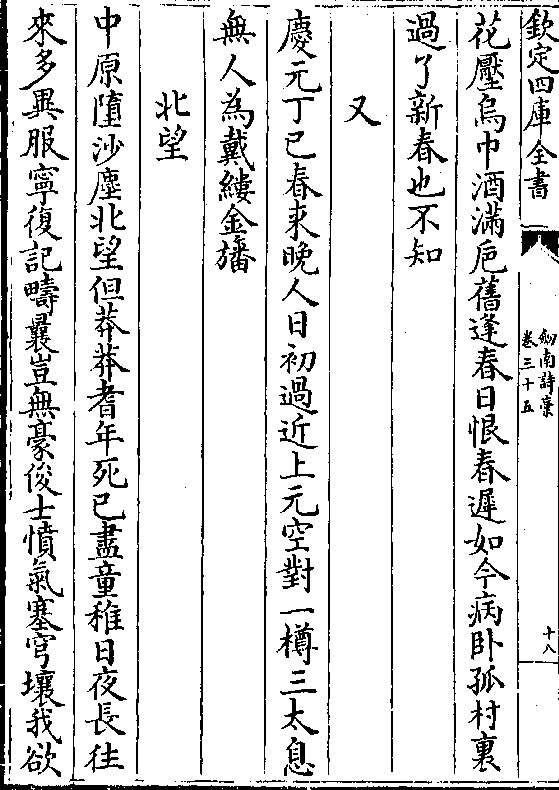 欽定四庫全書
劒南詩稾
卷三十五
十八
花壓烏巾酒滿巵舊逢春日恨春遲如今病卧孤村裏
過了新春也不知
又
慶元丁巳春來晚人日初過近上元空對一樽三太息
無人為戴縷金旛
北望
中原墮沙塵北望但莽莽耆年死已盡童稚日夜長往
來多異服寧復記疇曩豈無豪俊士憤氣塞穹壤我欲